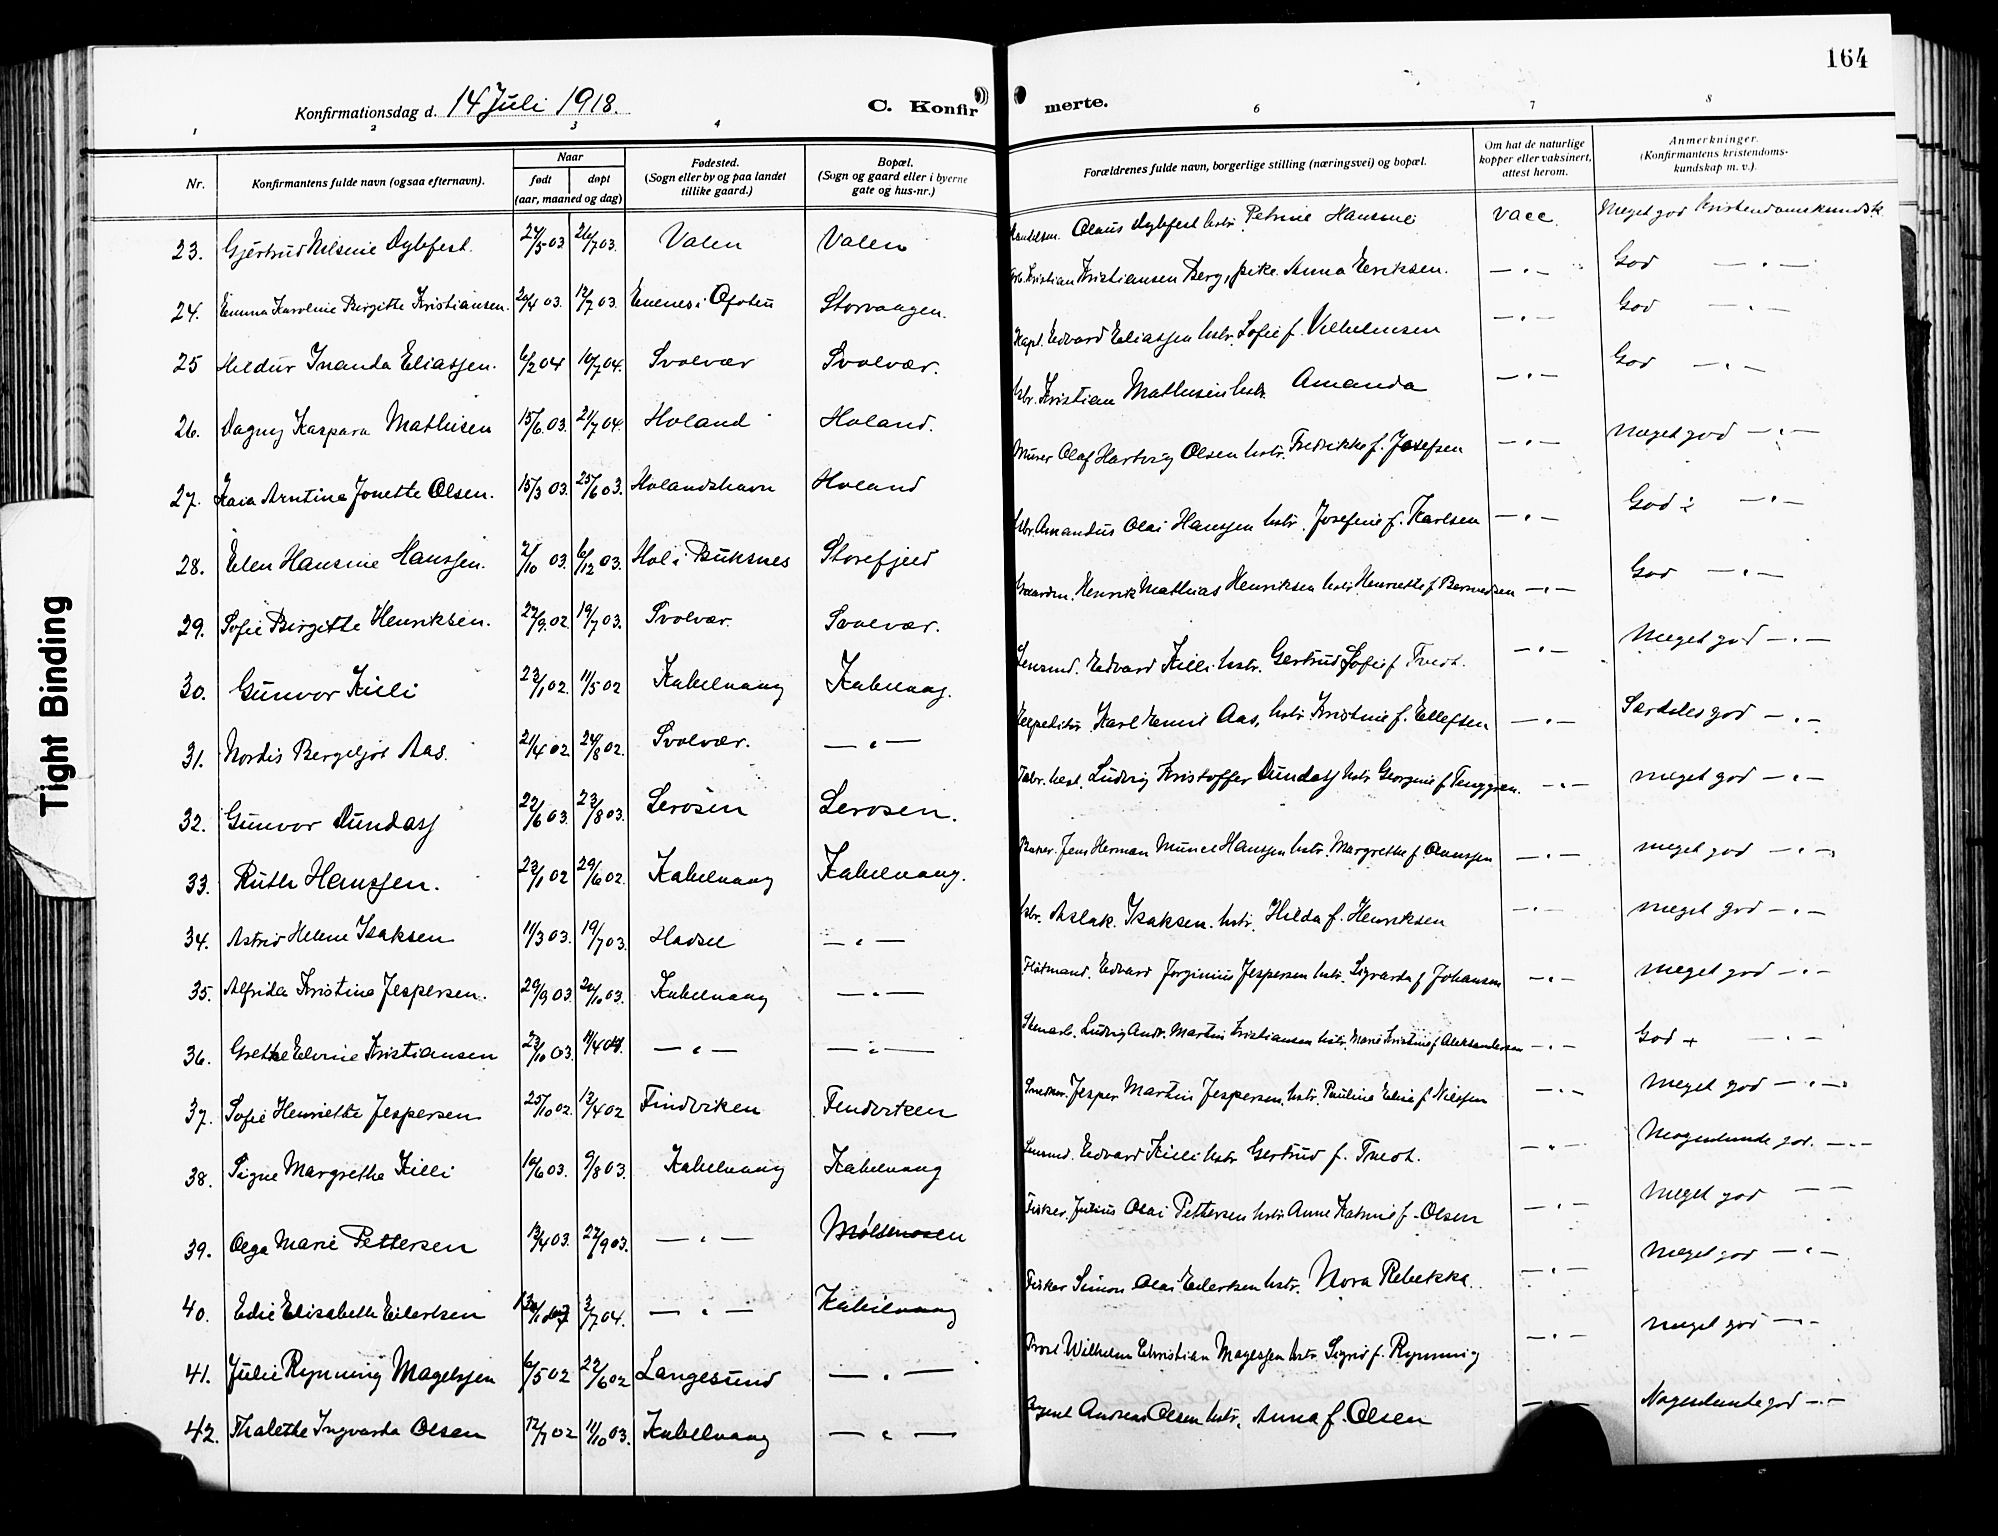 164
Konfirmationsdag d. 14 Juli 1918. C. Konfirmerte.
1 2 3 4 6 7 8
Nr. Konfirmantens fulde navn (ogsaa efternavn). Naar født døpt (aar, maaned og dag) Fødested. (Sogn eller by og paa landet tillike gaard.) Bopæl. (Sogn og gaard eller i byerne gate og hus-nr.) Forældrenes fulde navn, borgerlige stilling (næringsvei) og bopæl. Om hat de naturlige kopper eller vaksinert, attest herom. Anmerkninger. (Konfirmantens kristendomskundskap m. v.).
23. Gjertrud Nilsine Dybfest. 24/5 03 26/7 03. Valen Valen Olaus Dybfest hstr. Petrine Hansine vacc. Meget god kristendomskundsk.
24. Emma Karoline Birgitte Kristiansen. 20/4 03. 12/7 03. Evenes i Ofoten Storvaagen. Kristian Kristiansen Berg, pike Anna Eriksen. — " — God — " —
25 Hildur Inanda Eliassen. 6/2 04 10/7 04. Svolvær Svolvær. Kapt. Edvard Eliassen hstr. Sofie f. Vilhelmsen — " — God — " —
26. Dagny Kaspara Mathisen 15/6 03. 21/7 04. Holand Holand. Kristian Mathisen hstr. Amanda — " — God — " —
27. Kaia Arntine Jonette Olsen. 15/3 03. 25/6 03. Holandshavn Holand Murer Olaf Hartvig Olsen hstr. Fredrikke f. Josefsen — " — Meget god — " —
28. Elen Hansine Hanssen. 2/10 03. 6/12 03. Hol i Buksnes Storefjeld Amandus Olai Hanssen hstr. Josefine f. Karlsen — " — God ÷ — " —
29. Sofie Birgitte Henriksen. 27/9 02. 19/7 03. Svolvær Svolvær. Henrik Mathias Henriksen hstr. Henriette f. Berntsen — " — God — " —
30. Gunvor Killi 23/1 02. 11/5 02 Kabelvaag Kabelvaag. Lensmd. Edvard Killi hstr. Gertrud Sofie f. — " — Meget god — " —
31. Nordis Bergljot Aas. 21/4 02 24/8 02. Svolvær. — " — Expeditør Karl Emil Aas, hstr. Kristine f. Ellefsen — " — Særdeles god — " —
32. Gunvor Dundas 22/6 03. 23/8 03. Lerosen Lerosen. Ludvig Kristoffer Dundas hstr. Georgine f. Tenggren. — " — meget god — " —
33. Ruth Hanssen. 22/1 02 29/6 02. Kabelvaag Kabelvaag. Baker. Jens Herman Hanssen hstr. Margrethe f. — " — meget god — " —
34. Astrid Helene Isaksen 11/3 03. 19/7 03. Hadsel — " — Aslak Isaksen. hstr. Hilda f. Henriksen — " — meget god — " —
35. Alfrida Kristine Jespersen. 29/9 03 /10 03. Kabelvaag — " — Edvard Jorginius Jespersen hstr. Sigvarda f. Johansen — " — meget god — " —
36. Grethe Elvine Kristiansen 23/10 03. /4 04. — " — — " — Stenarb. Ludvig Andr. Martin Kristiansen hstr. Marie Kristine f. Aleksandersen — " — God + — " —
37. Sofie Henriette Jespersen 25/10 02. 12/4 02 Findviken Findviken Snedker. Jesper Martin Jespersen, hstr. Pauline Elise f. Nilssen — " — Meget god — " —
38. Signe Margrethe Killi /6 03. 9/8 03. Kabelvaag Kabelvaag Lensmd. Edvard Killi hstr. Gertrud f. — " — Nogenlunde god. — " —
39. Olga Marie Pettersen 13/4 03. 27/9 03. — " — Molldøren Fisker. Julius Olai Pettersen hstr. Anne Katrine f. Olsen — " — Meget god — —
40. Edie Elisabeth Eilertsen 3/7 04. — " — Kabelvaag Fisker Simon Olai Eilertsen hstr. Nora Rebekka. — " — Meget god — " —
41. Julie Rynning Magelssen 6/5 02 22/6 02 Langesund — " — Prost Wilhelm Christian Magelssen hstr. Sigrid f. Rynning — " — meget god — " —
42. Thalette Ingvarda Olsen 12/7 02 11/10 03. Kabelvaag — " — Agent Andreas Olsen hstr. Anna f. Olsen — " — Nogenlunde god — " —
Tight Binding